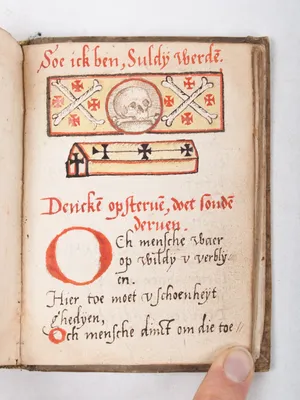 Soe ick ben, Suldy werdē.
Denckē op stervē, doet sondē
derven.
Och mensche waer
op wildy v verbly
en.
Hier toe moet v schoenheyt
ghedyen,
Och mensche dinct om die toe/